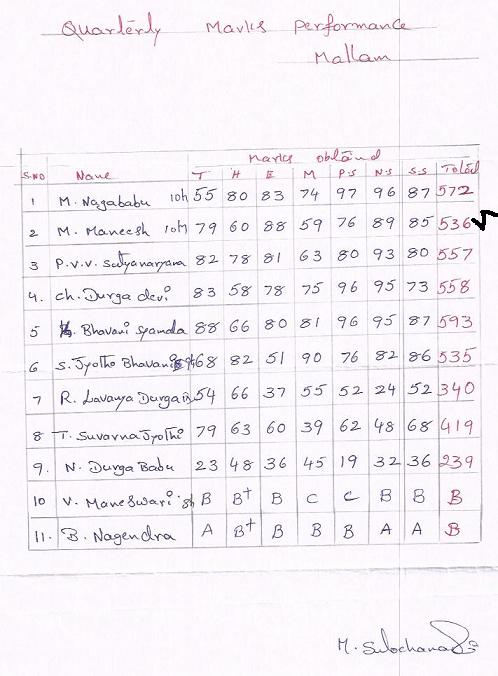 Quarterly Marks performance
Mallam
Marks obtained
S.NO Name T H E M P.S N.S S.S Total
1 M. Nagababu 10th 55 80 83 74 97 96 87 572
2 M. Maneesh 10th 79 60 88 59 76 89 85 536
3 P.V.V. Satyanaryana 82 78 81 63 80 93 80 557
4. Ch. Durga devi 83 58 78 75 96 95 73 558
5 Bhavani syamala 88 66 80 81 96 95 87 593
6 S. Jyothi Bhavani 9th 68 82 51 90 76 82 86 535
7 R. Lavanya Durga 54 66 37 55 52 24 52 340
8 T. Suvarna Jyothi 79 63 60 39 62 48 68 419
9. N. Durga Babu 23 48 36 45 19 32 36 239
10 V. Maneswari 8th B B+ B C C B B B
11. B. Nagendra A B+ B B B A A B
M. Sulochana